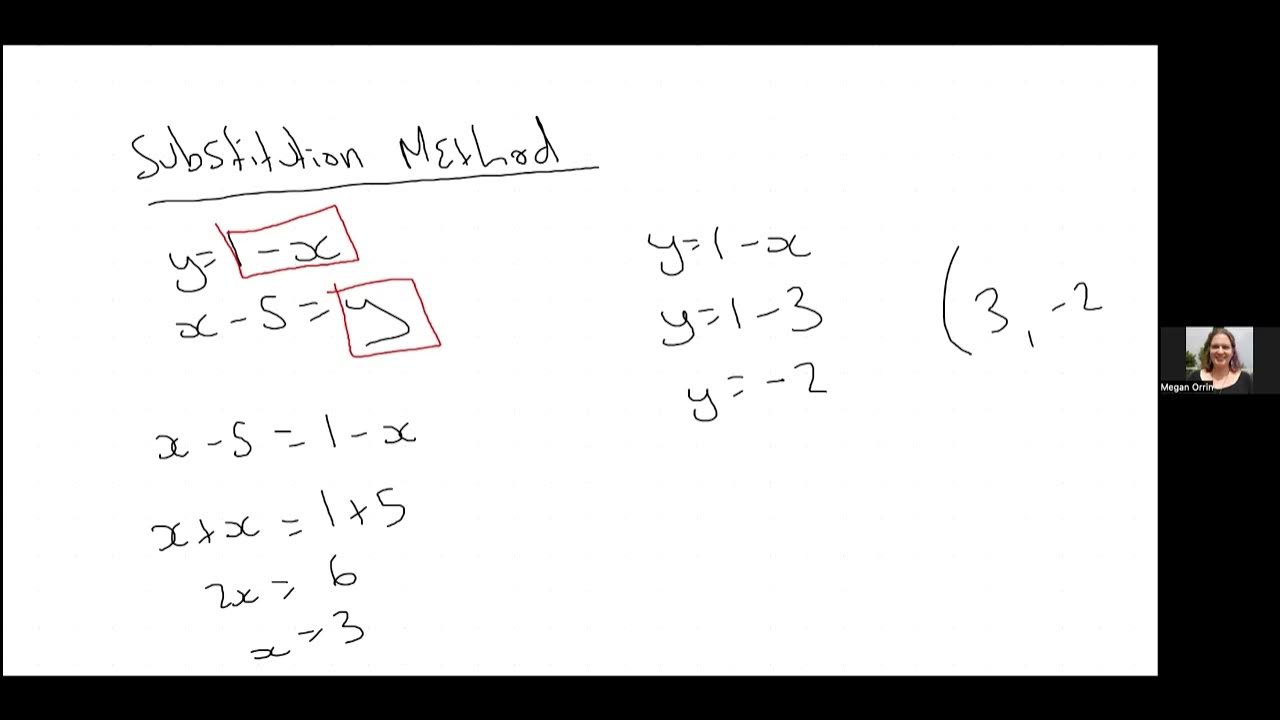 Substitution Method
y=1-x
x-5=y
x-5=1-x
x+x=1+5
2x=6
x=3
y=1-x
y=1-3
y=-2
(3,-2
Megan Orrin